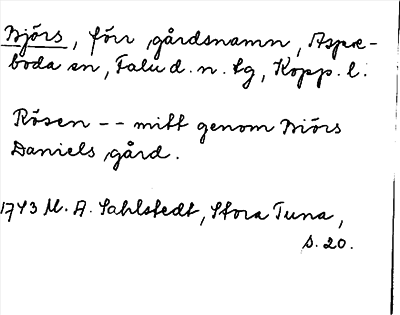 Björs, förr gårdsnamn, Aspe-
boda sn, Falu d. n. tg, Kopp. l.
Rösen -- mitt genom Biörs
Daniels gård.
1743 M. A. Sahlstedt, Stora Tuna,
s. 20.